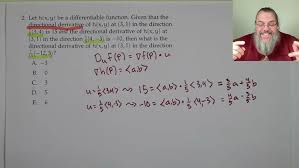 2. Let h(x,y) be a differentiable function. Given that the
directional derivative of h(x,y) at (3,1) in the direction
is 15 and the directional derivative of h(x,y) at
(3,1) in the direction ⅕⟨4,-3⟩ is -10, then what is the
directional derivative of h(x,y) at (3,1) in the direction
A. -3
B. 0
C. 3
D. 5
E. 6
D_u f(P) = ∇f(P) • u
∇h(P) = <a,b>
u = ⅕<3,4> ⤳ 15 = <a,b> • ⅕<3,4> = ⅗a + ⅘b
u = ⅕<4,-3> ⤳ -10 = <a,b> • ⅕<4,-3> = ⅘a - ⅗b